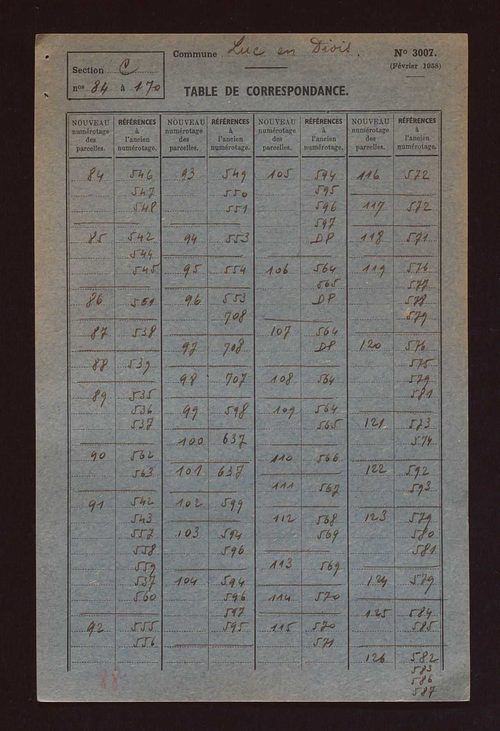 Commune Luc en Diois.
N° 3007.
(Février 1938)
Section C
nos 84 à 170
TABLE DE CORRESPONDANCE.
NOUVEAU numérotage des parcelles. RÉFÉRENCES à l'ancien numérotage. NOUVEAU numérotage des parcelles. RÉFÉRENCES à l'ancien numérotage. NOUVEAU numérotage des parcelles. RÉFÉRENCES à l'ancien numérotage. NOUVEAU numérotage des parcelles. RÉFÉRENCES à l'ancien numérotage.
84 546 93 549 105 594 116 572
547 550 595
548 551 596 117 572
597
85 542 94 553 DP 118 571
544
545 95 554 106 564 119 576
565 577
86 551 96 553 DP 578
708 579
87 538 107 564
97 708 DP 120 576
88 539 575
98 707 108 564 579
89 535 581
536 99 598 109 564
537 565 121 573
100 637 574
90 562 110 566
563 101 637 122 592
111 567 593
91 542 102 599
543 112 568 123 579
557 103 594 569 580
558 596 581
559 113 569
537 104 594 124 579
560 596 114 570
597 125 584
92 555 595 115 570 585
556 571
126 582
583
586
587
88